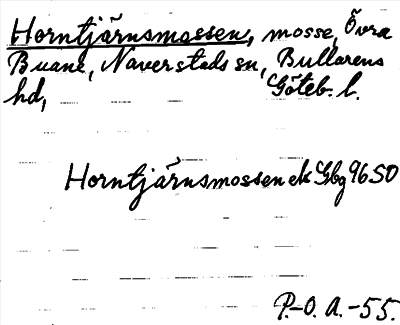 Horntjärnsmossen, mosse, Övra
Buane, Naverstads sn, Bullarens
hd, Göteb. l.
Horntjärnsmossen ek Gbg 96 SO
P.-O. A. -55.